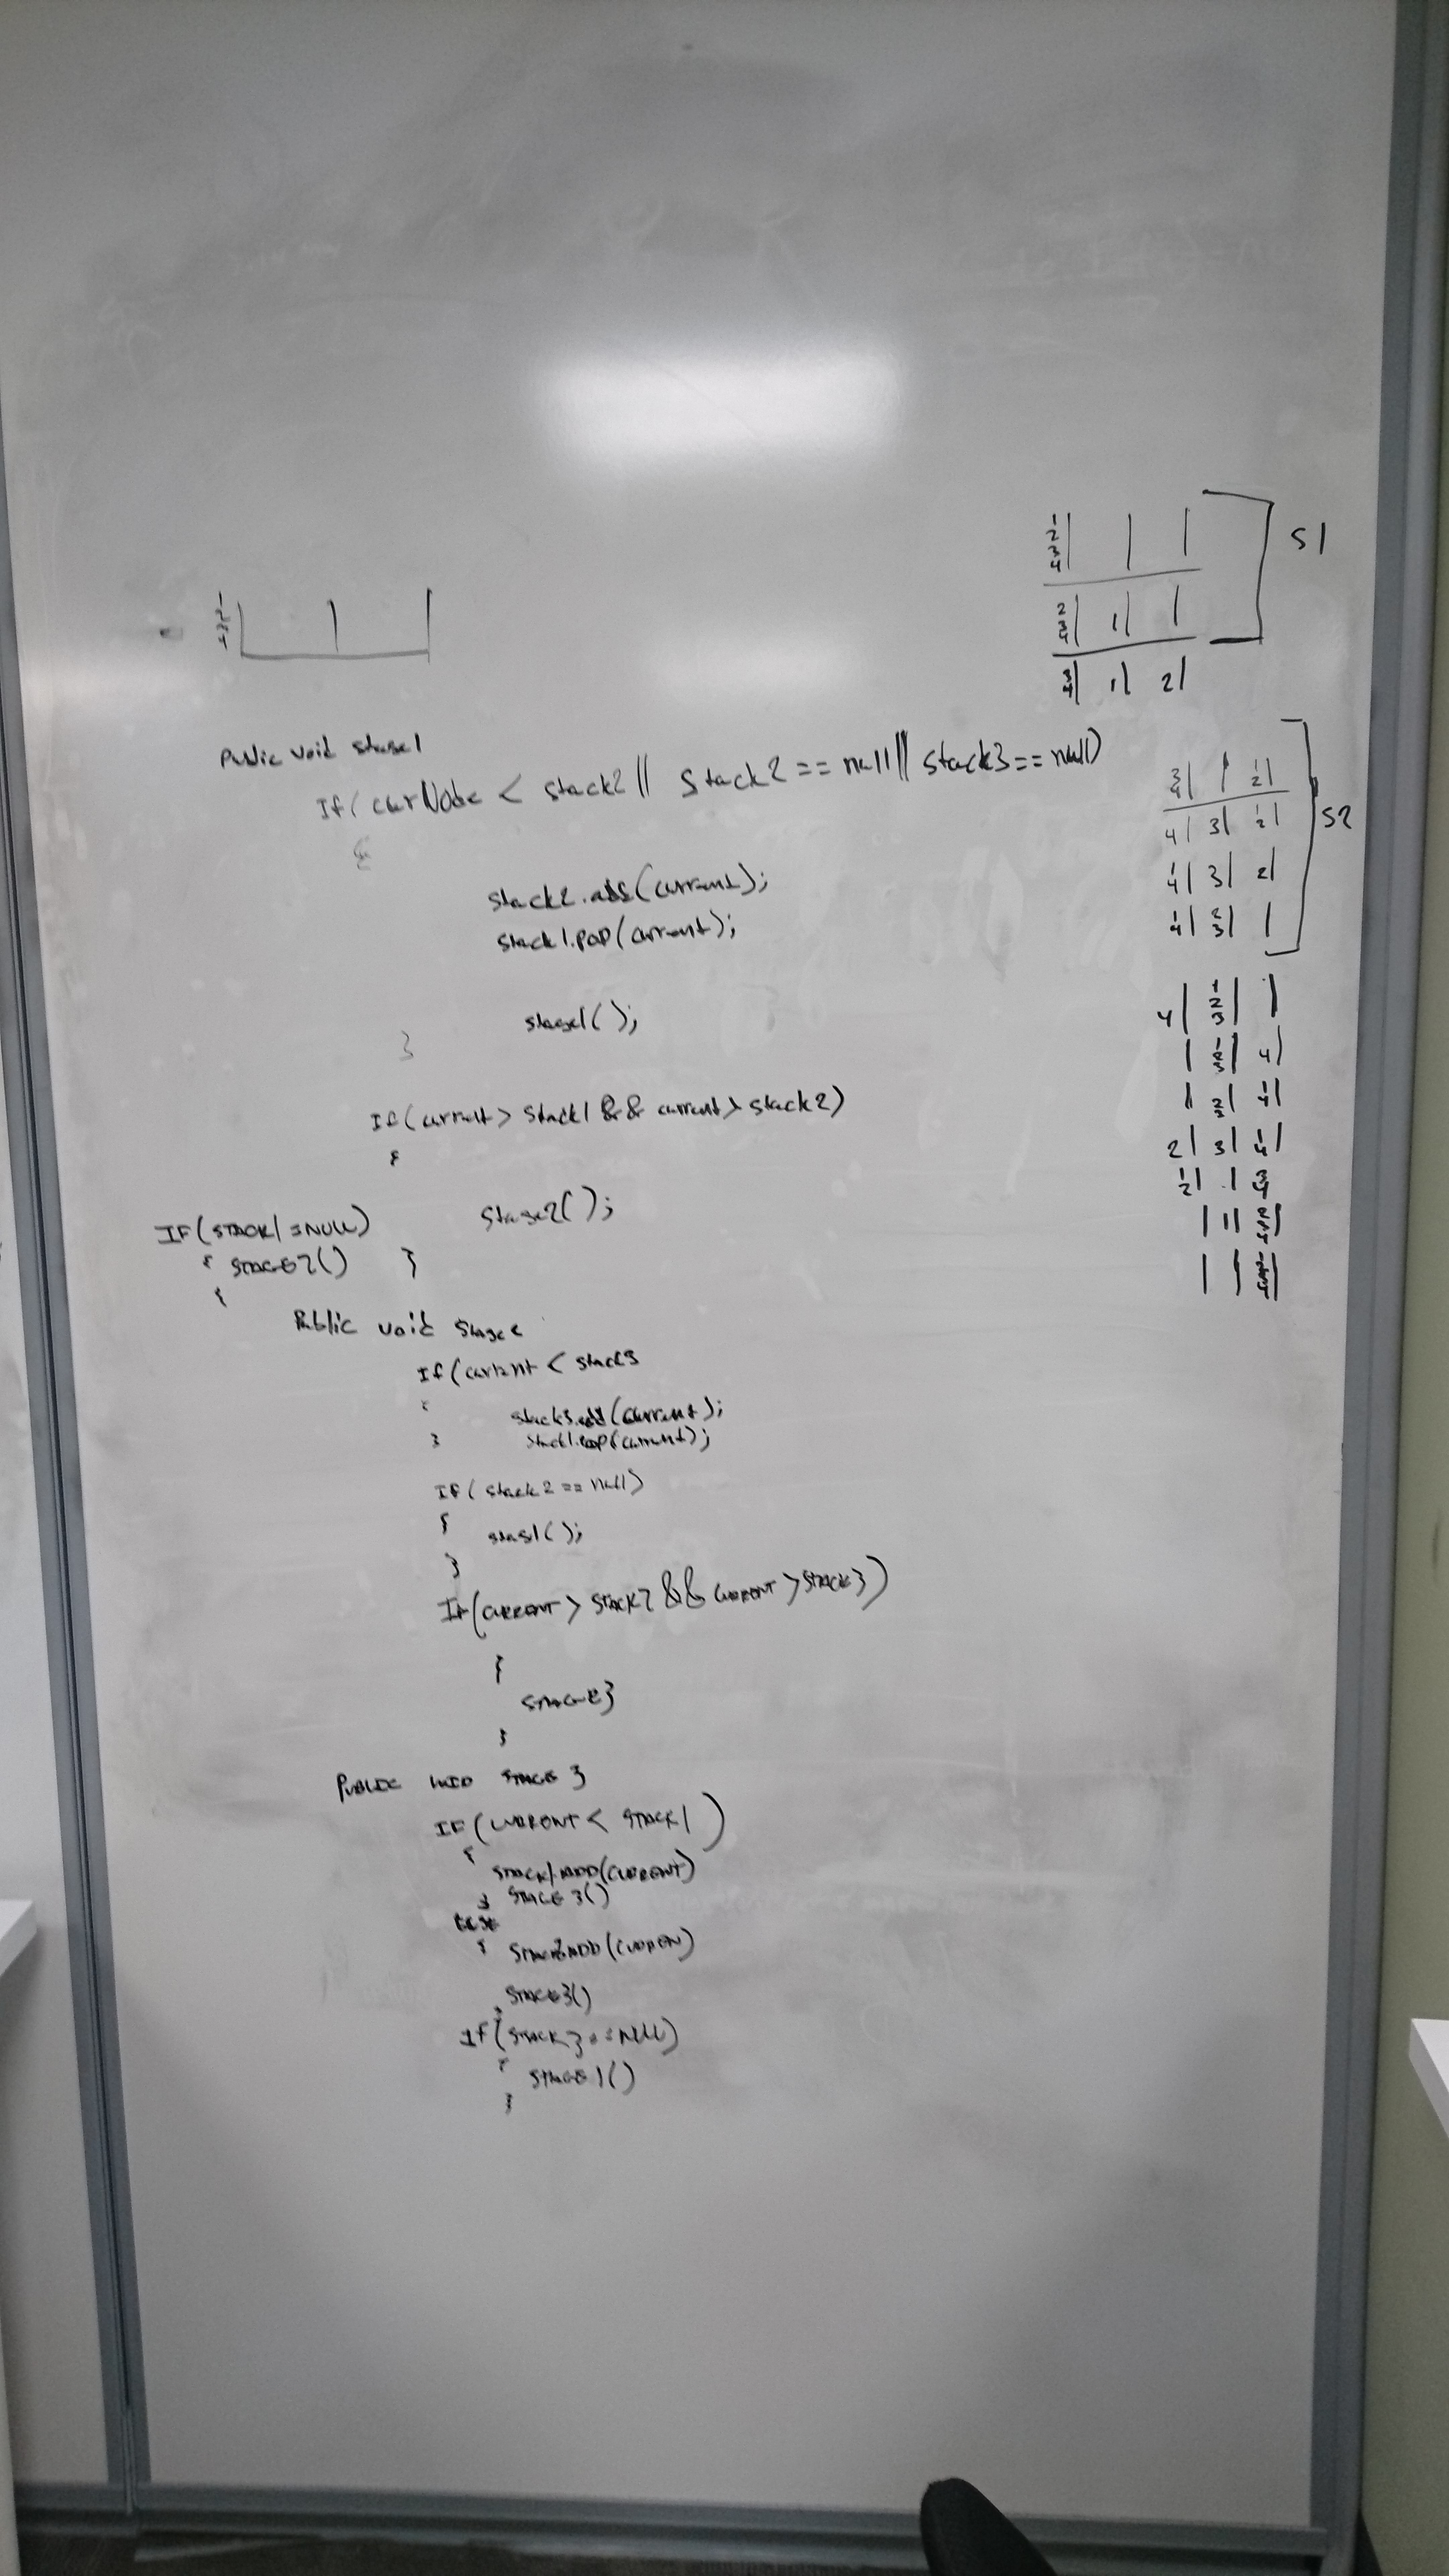 1
2
3
4
Public void stage1
If(curNode < stack2 || Stack2 == null || stack3 == null)
{
stack2.add(current);
stack1.pop(current);
stage1();
}
If(current > Stack1 && current > stack2)
{
Stage2();
}
IF(STACK1 =NULL)
{ STAGE2()
{
Public void Stage2
If(current < stack3
{
stack3.add(current);
stack1.pop(current);
}
If(stack2 == null)
{
stas1();
}
If(CURRENT > STACK2 && CURRENT > STACK3)
{
STAGE3
}
PUBLIC VOID STAGE 3
IF(CURRENT < STACK1)
{
STACK1.ADD(CURRENT)
} STAGE 3()
ELSE
{ STACK2ADD(CURREN)
STAGE3()
}
IF(STACK3==NULL)
{
STAGE1()
}
1
2
3
4 | | |
S1
2
3
4 | 1 | |
3
4 | 1 | 2 |
3
4 | | 1
2 |
S2
4 | 3 | 1
2 |
1
4 | 3 | 2 |
1
4 | 2
3 | |
4 | 1
2
3 | |
| 1
2
3 | 4 |
| 2
3 | 1
4 |
2 | 3 | 1
4 |
1
2 | | 3
4
| 1 | 2
3
4 |
| | 1
2
3
4 |